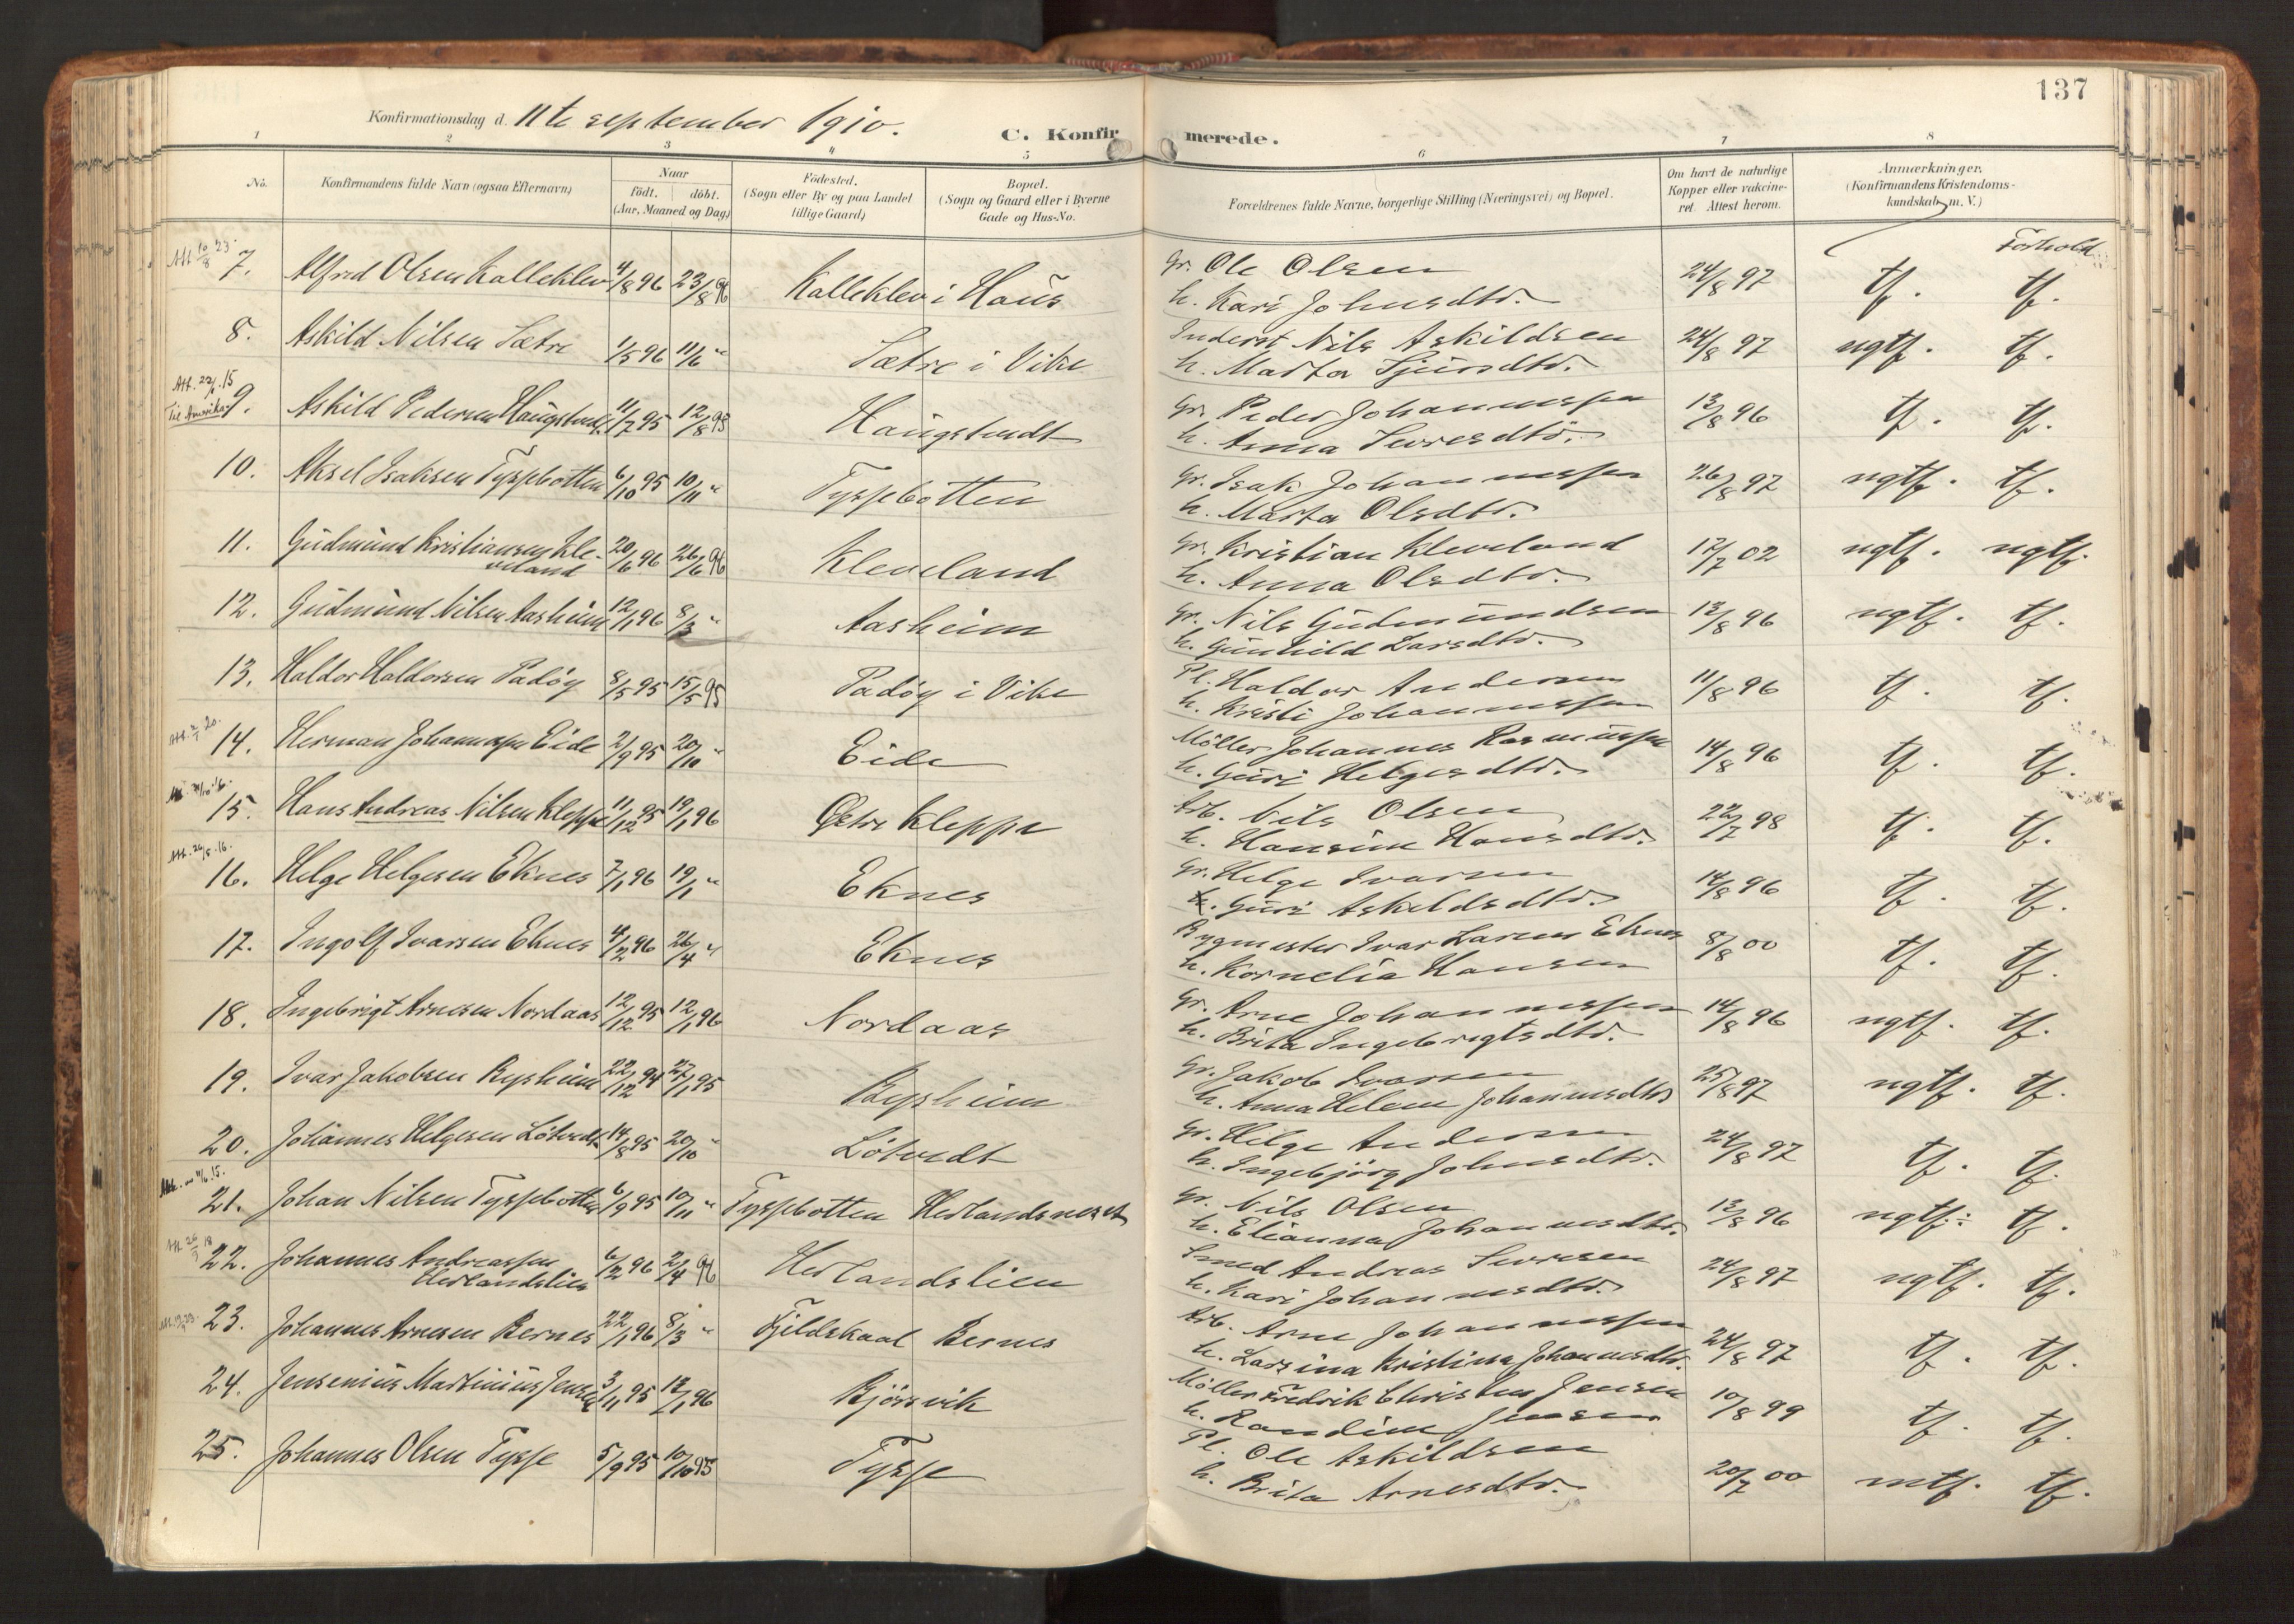 137
Konfirmationsdag d. 11te september 1910.
C. Konfirmerede.
1 2 3 4 5 6 7 8
No.
Konfirmandens fulde Navn (ogsaa Efternavn)
Naar
født. døbt.
(Aar, Maaned og Dag)
Födested.
(Sogn eller By og paa Landet
tillige Gaard)
Bopæl.
(Sogn og Gaard eller i Byerne
Gade og Hus-No.
Forældrenes fulde Navne, borgerlige Stilling (Næringsvei) og Bopæl.
Om havt de naturlige
Kopper eller vakcine-
ret. Attest herom.
Anmærkninger.
(Konfirmandens Kristendoms-
kundskab m. V.)
Forhold
Att 10/8 23
7. Alfred Olsen Kalleklev 4/8 96 23/8 96 Kalleklev i Haus Gr. Ole Olsen 24/8 97 tf. tf.
h. Kari Johnsdtr.
8. Askild Nilsen Sætre 1/5 96 11/6 " Sætre i Vike Inderst Nils Askildsen 24/8 97 ngtf. tf.
h. Marta Sjursdtr.
Att. 22/1 15
Til Amerika
9. Askild Pedersen Haugstvedt 11/7 95 12/8 95 Haugstvedt Gr. Peder Johannessen 13/8 96 tf. tf.
h. Anna Seversdtr.
10. Aksel Isaksen Tyssebotten 6/10 95 10/11 " Tyssebotten Gr. Isak Johannessen 26/8 97 ngtf. tf.
h. Marta Olsdtr.
11. Gudmund Kristiansen Kle-
veland 20/6 96 26/6 96 Kleveland Gr. Kristian Kleveland 17/7 02 ngtf. ngtf.
h. Anna Olsdtr.
12. Gudmund Nilsen Aasheim 12/1 96 8/3 " Aasheim Gr. Nils Gudmundsen 13/8 96 ngtf. tf.
h. Gunhild Larsdtr.
13. Haldor Haldorsen Padøy 8/5 95 15/5 95 Padøy i Vike Pl. Haldor Andersen 11/8 96 tf. tf.
h. Kristi Johannessen
Att. 2/1 20.
14. Herman Johannessen Eide 2/9 95 20/10 " Eide Möller Johannes Rasmussen 14/8 96 tf. tf.
h. Guri Helgesdtr.
15. Hans Andreas Nilsen Kleppe 11/12 95 19/1 96 Øvre Kleppe Arb. Nils Olsen 22/7 98 tf. tf.
h. Hansine Hansdtr.
Att. 26/8 16.
16. Helge Helgesen Eknes 7/1 96 19/1 " Eknes Gr. Helge Ivarsen 14/8 96 tf. tf.
h. Guri Askildsdtr.
17. Ingolf Ivarsen Eknes 4/2 96 26/4 " Eknes Bygmester Ivar Larsen Eknes 8/8 00 tf. tf.
h. Kornelia Hansen
18. Ingebrigt Arnesen Nordaas 12/12 95 12/1 96 Nordaas Gr. Arne Johannessen 14/8 96 ngtf. tf.
h. Brita Ingebrigtsdtr.
19. Ivar Jakobsen Rysheim 22/12 94 27/1 95 Rysheim Gr. Jakob Ivarsen 25/8 97 ngtf. tf.
h. Anna Helene Johannesdtr
20. Johannes Helgesen Løtvedt 14/8 95 20/10 " Løtvedt Gr. Helge Andersen 24/8 97 tf. tf.
h. Ingebjørg Johnsdtr.
21. Johan Nilsen Tyssebotten 6/9 95 10/11 " Tyssebotten Herlandsneset Gr. Nils Olsen 13/8 96 ngtf. tf.
h. Elianna Johannesdtr.
22. Johannes Andreassen
Herlandslien 6/2 96 2/4 96 Herlandslien Smed Andreas Seversen 24/8 97 ngtf. tf.
h. Kari Johannesdtr.
23. Johannes Arnesen Bernes 22/1 96 8/3 " Fjeldskaal Bernes Arb. Arne Johannessen 24/8 97 tf. tf.
h. Larsina Kristina Johannesdtr.
24. Jensenius Martinius Jensen 3/11 95 12/1 96 Bjørsvik Möller Fredrik Christian Jensen 10/8 99 tf. tf.
h. Randine Jensen
25. Johannes Olsen Tysse 5/9 95 10/10 95 Tysse Pl. Ole Askildsen 20/7 00 mtf. tf.
h. Brita Arnesdtr.